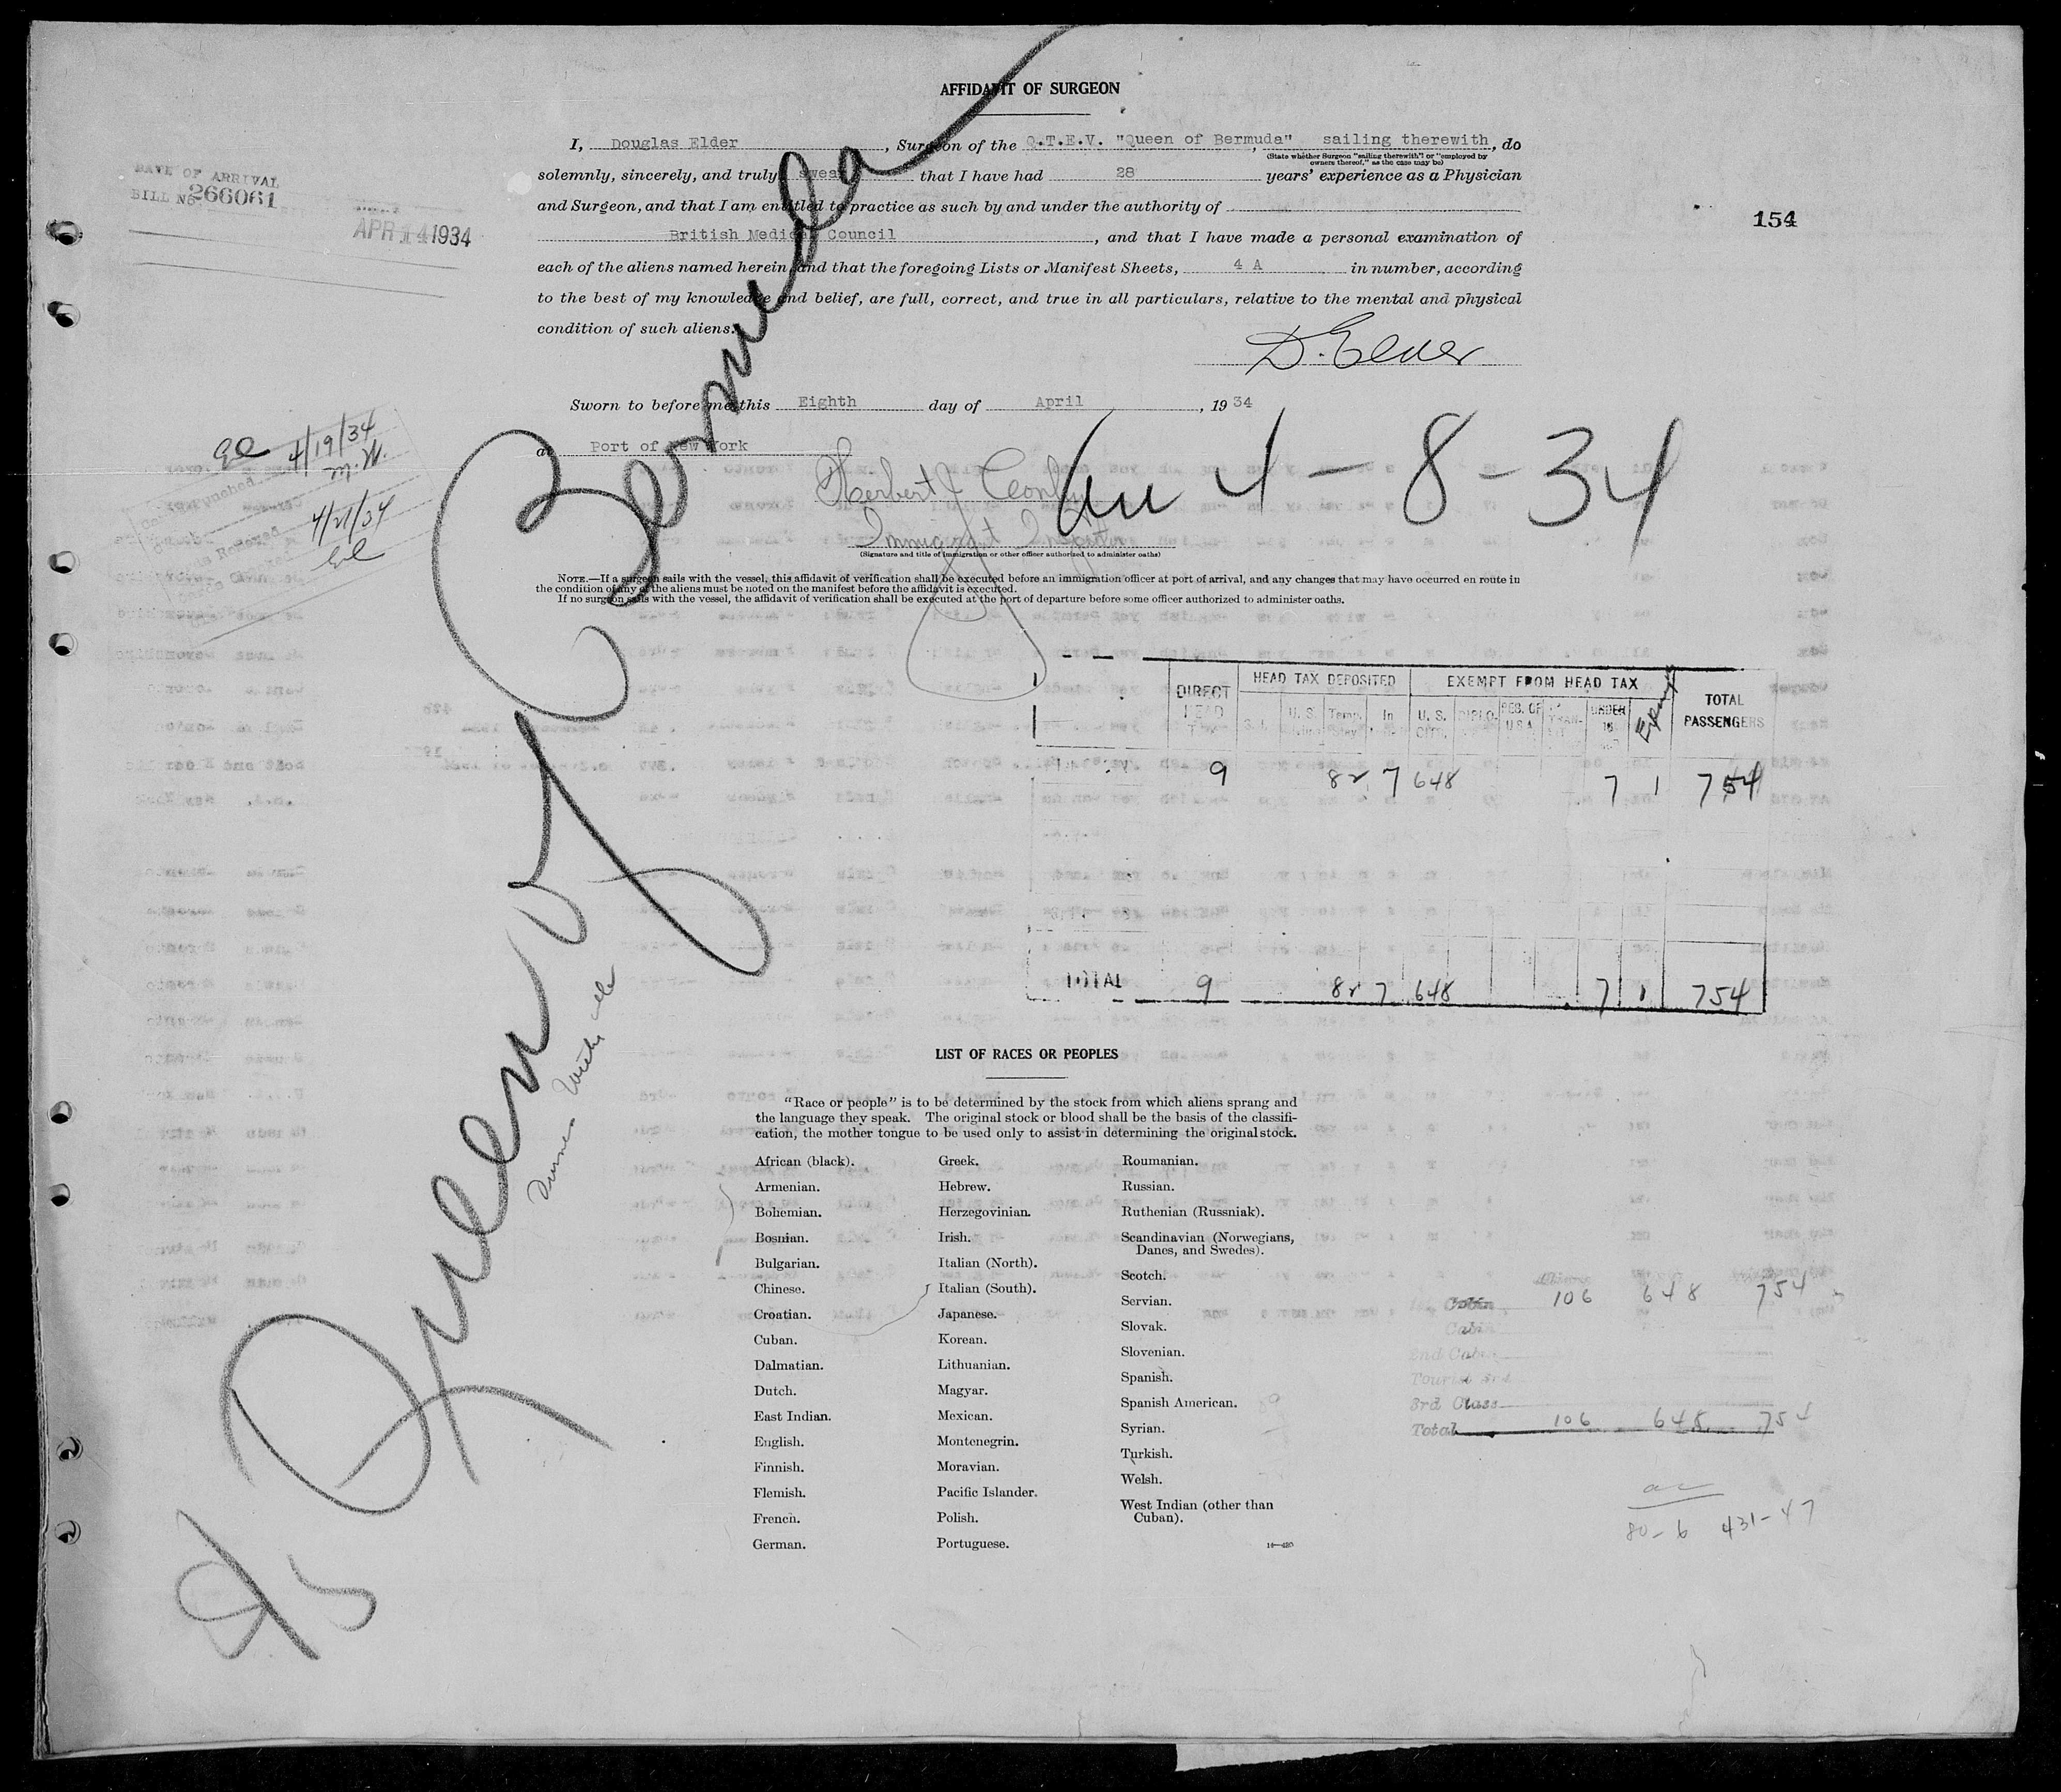 AFFIDAVIT OF SURGEON
I, Douglas Elder, Surgeon of the Q.T.E.V. "Queen of Bermuda", sailing therewith, do
(State whether Surgeon "sailing therewith" or "employed by
owners thereof," as the case may be)
solemnly, sincerely, and truly swear that I have had 28 years' experience as a Physician
and Surgeon, and that I am entitled to practice as such by and under the authority of
British Medical Council, and that I have made a personal examination of
each of the aliens named herein, and that the foregoing Lists or Manifest Sheets, 4 A in number, according
to the best of my knowledge and belief, are full, correct, and true in all particulars, relative to the mental and physical
condition of such aliens.
D. Elder
DATE OF ARRIVAL
BILL No 266061
APR 14 1934
154
Sworn to before me this Eighth day of April, 1934
at Port of New York
4/19/34
M.W.
4/21/34
Herbert J Conley
Immigrant Inspector
(Signature and title of immigration or other officer authorized to administer oaths)
4-8-34
NOTE.—If a surgeon sails with the vessel, this affidavit of verification shall be executed before an immigration officer at port of arrival, and any changes that may have occurred en route in
the condition of any of the aliens must be noted on the manifest before the affidavit is executed.
If no surgeon sails with the vessel, the affidavit of verification shall be executed at the port of departure before some officer authorized to administer oaths.
S/S Queen of Bermuda
DIRECT HEAD TAX
HEAD TAX DEPOSITED
EXEMPT FROM HEAD TAX
TOTAL PASSENGERS
U. S.
Temp.
In
U. S. CITS.
DIPLO.
RES. OF U.S.A.
TRAN-SIT
UNDER 16
9 82 7 648 7 1 754
TOTAL 9 82 7 648 7 1 754
LIST OF RACES OR PEOPLES
"Race or people" is to be determined by the stock from which aliens sprang and
the language they speak. The original stock or blood shall be the basis of the classifi-
cation, the mother tongue to be used only to assist in determining the original stock.
African (black).
Armenian.
Bohemian.
Bosnian.
Bulgarian.
Chinese.
Croatian.
Cuban.
Dalmatian.
Dutch.
East Indian.
English.
Finnish.
Flemish.
French.
German.
Greek.
Hebrew.
Herzegovinian.
Irish.
Italian (North).
Italian (South).
Japanese.
Korean.
Lithuanian.
Magyar.
Mexican.
Montenegrin.
Moravian.
Pacific Islander.
Polish.
Portuguese.
Roumanian.
Russian.
Ruthenian (Russniak).
Scandinavian (Norwegians,
Danes, and Swedes).
Scotch.
Servian.
Slovak.
Slovenian.
Spanish.
Spanish American.
Syrian.
Turkish.
Welsh.
West Indian (other than
Cuban).
106 648 754
Cabin
2nd Cabin
Tourist 3rd
3rd Class
Total 106 648 754
80-6 431-47